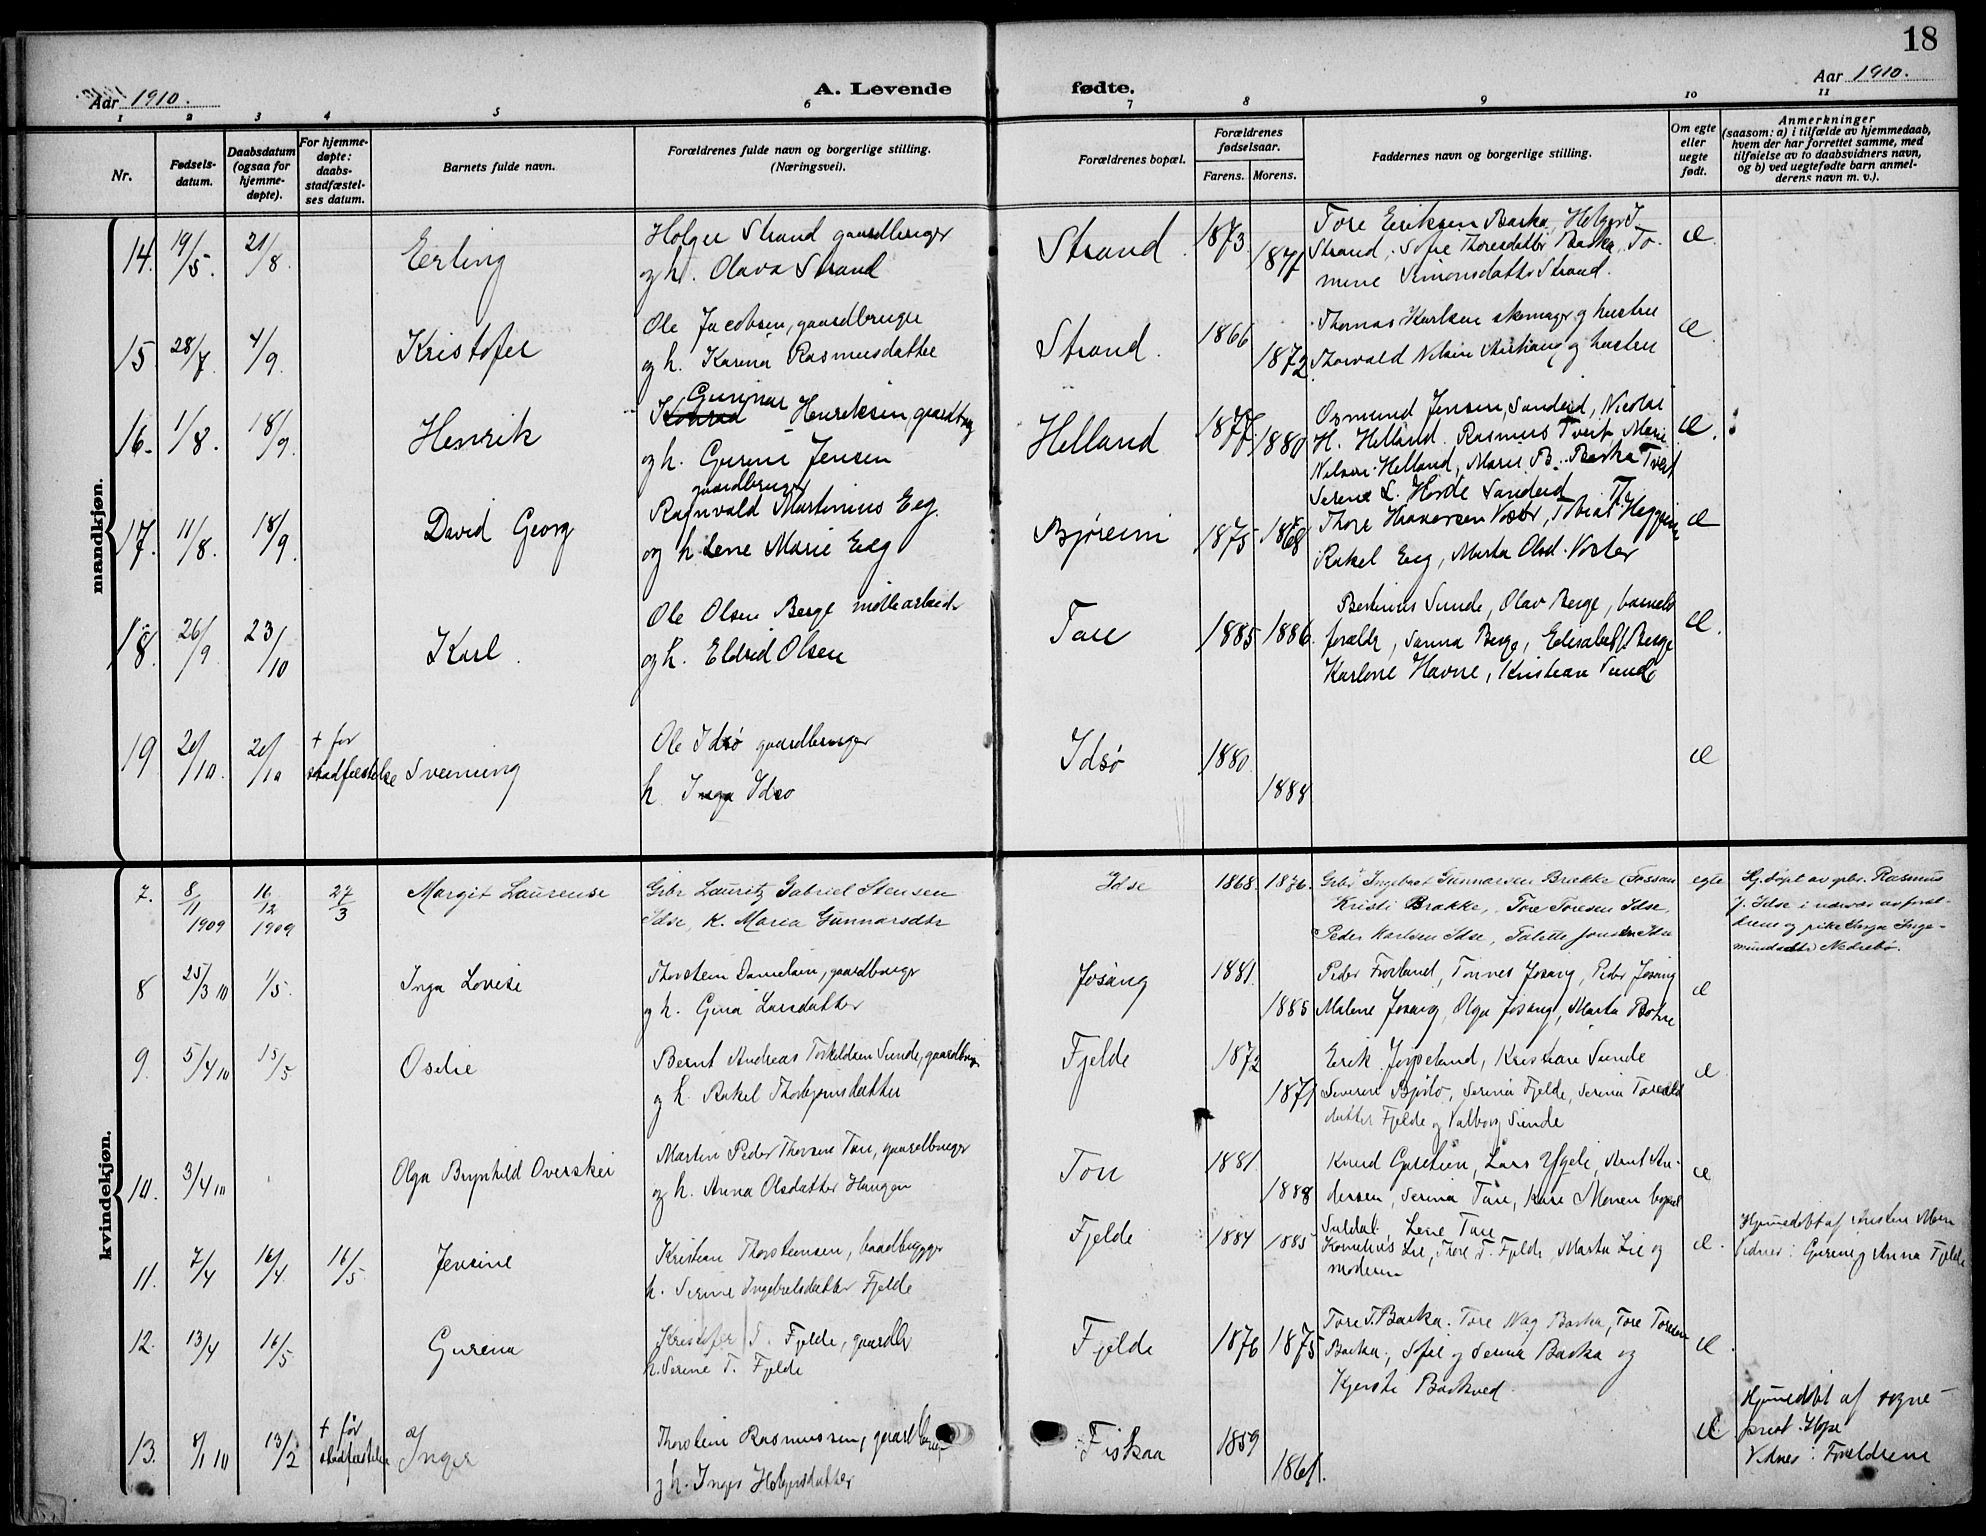 18
Aar 1910.
A. Levende fødte.
Aar 1910.
1 2 3 4 5 6 7 8 9 10 11
Nr.
Fødsels-
datum.
Daabsdatum
(ogsaa for
hjemme-
døpte).
For hjemme-
døpte:
daabs-
stadfæstel-
ses datum.
Barnets fulde navn.
Forældrenes fulde navn og borgerlige stilling.
(Næringsvei).
Forældrenes bopæl.
Forældrenes
fødselsaar.
Farens. Morens.
Faddernes navn og borgerlige stilling.
Om egte
eller
uegte
født.
Anmerkninger
(saasom: a) i tilfælde av hjemmedaab,
hvem der har forrettet samme, med
tilføielse av to daabsvidners navn,
og b) ved uegtefødte barn anmel-
derens navn m. v.).
mandkjøn.
14. 19/5. 21/8. Erling
Holger Strand gaardbruger
og h. Olava Strand
Strand 1873 1871
Tore Eriksen Barka, Holger T.
Strand, Sofie Thoresdatter Barka, To-
mine Simonsdatter Strand.
15. 28/7. 4/9. Kristofer
Ole Jacobsen, gaardbruger
og h. Karina Rasmusdatter
Strand. 1866 1872
Thomas Karlsen skomager og hustru
Thorvald Nilsen og hustru
16. 1/8. 18/9. Henrik
Gunnar
Konrad Henriksen gaardbrug
og h. Gurine Jensen
Helland 1877. 1880
Osmund Jensen, Sandeid, Nicolai
H. Helland. Rasmus Tveit, Marie
Nilsen Helland, Maria B. Barka Tveit
Serena L. Horde Sandeid
17. 11/8. 18/9. David Georg
gaardbruger
Ragnvald Martinius Eeg.
og h. Lene Marie Eeg
Bjøreim 1875 1868
Thore Haaversen Voster, Tobias Heggem
Rakel Eeg, Marta Olsd. Voster
18. 26/9 23/10 Karl.
Ole Olsen Berge møllearbeid.
og h. Eldrid Olsen
Tau 1885 1886.
Bertinius Sunde, Olav Berge, barnets
forældr, Sanna Berge, Elisabeth Berge
Karlene Havne, Kristian Sunde
19 20/10. 20/10 + før
stadfæstelse Sveinung
Ole Idsø gaardbruger
h. Inga Idsø
Idsø 1880 1888
kvindekjøn.
7. 8/11 1909 16/12 1909 27/3 Margit Laurense
Grbr. Lauritz Gabriel Stensen
Idse, K. Maria Gunnarsdtr
Idse 1868. 1876.
Grbr Ingebret Gunnarsen Brække (Fossan
Kristi Brække, Tore Toresen Idse,
Peder Karlsen Idse, Talette Jonsen Idse
egte
Hj. døpt av gbr. Rasmus
J. Idse i nærvær av foræl-
drene og pike Inga Inge-
mundsdatter Nedrebø.
8 25/3 10 1/5. Inga Lovise
Thorstein Danielsen, gaardbruger
og h. Gina Larsdatter
Jøsang 1881. 1885
Peder Frøland, Tonnes Jøsang, Peder Jøsang
Malene Jøsang, Olga Jøsang, Marta Botne
9. 5/4 10 15/5 Osdie
Bernt Andreas Torkeldsen Sunde, gaardbrug
og h. Rakel Thorbjørnsdatter
Fjelde 1872 1871
Erik Jøspeland, Kristian Sunde
Severin Bjørlo, Serina Fjelde, Serina Torvalds
datter Fjelde og Valborg Sunde
10. 3/4 10 Olga Brynhild Overskei
Martin Peder Thorsen Tau, gaardbruger
og h. Anna Olsdatter Haugen
Tou 1881 1888
Knud Garstien, Lars Ygele, Arnt An-
dersen, Serina Tau, Kari Monen bopæl
Suldal. Lene Tau
11. 7/4 16/4. 16/5. Jensine
Kristian Thorstensen, baadbygger
h. Serine Ingebretsdatter Fjelde
Fjelde 1884 1885
Kornelius Lie, Tore T. Fjelde, Marta Lie og
moderen
Hjemmedøbt af Kristen Moen
Vidner: Gurine og Anna Fjelde
12. 13/4 16/5 Gurena
Kristofer T. Fjelde, gaardbr
h. Serine T. Fjelde
Fjelde 1876 1875
Tore T. Barka. Tore Nag Barka, Tore Toresen
Barka, Sofie og Serina Barka og
Kjersti Barkved.
13. 8/1 10 13/2 + før
stadfæstelse Inger
Thorstein Rasmussen, gaardbrug
og h. Inger Holgersdatter
Fiskaa 1859 1861.
Hjemmedøbt af sogne-
prest Hope
Vidner: Forældrene